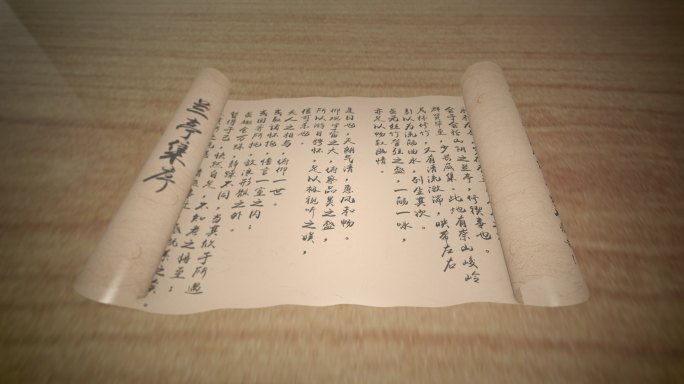 会于会稽山阴之兰亭，修禊事也。
群贤毕至，少长咸集。此地有崇山峻岭
茂林修竹，又有清流激湍，映带左右
引以为流觞曲水，列坐其次。
虽无丝竹管弦之盛，一觞一咏，
亦足以畅叙幽情。
是日也，天朗气清，惠风和畅。
仰观宇宙之大，俯察品类之盛，
所以游目骋怀，足以极视听之娱，
信可乐也。
夫人之相与，俯仰一世。
或取诸怀抱，悟言一室之内；
或因寄所托，放浪形骸之外。
虽趣舍万殊，静躁不同，当其欣于所遇
暂得于己，快然自足，不知老之将至；
兰亭集序